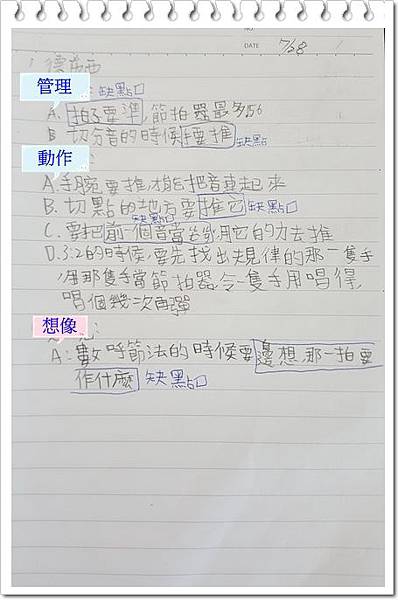 DATE 7/28
1. 德布西
管理 : 缺點口
A. 拍子要準,節拍器最多56
B. 切分音的時候要推 缺點
動作 :
A. 手腕要推,才能把音串起來
B. 切點的地方要推它 缺點口
缺點口
C. 要把前一個音當 用它的力去推
D. 3:2的時候,要先找出規律的那一隻手
用那隻手當節拍器,令一隻手用唱得,
唱個幾次再彈
想像 :
A: 數呼節法的時候要邊想,那一拍要
作什麼 缺點口